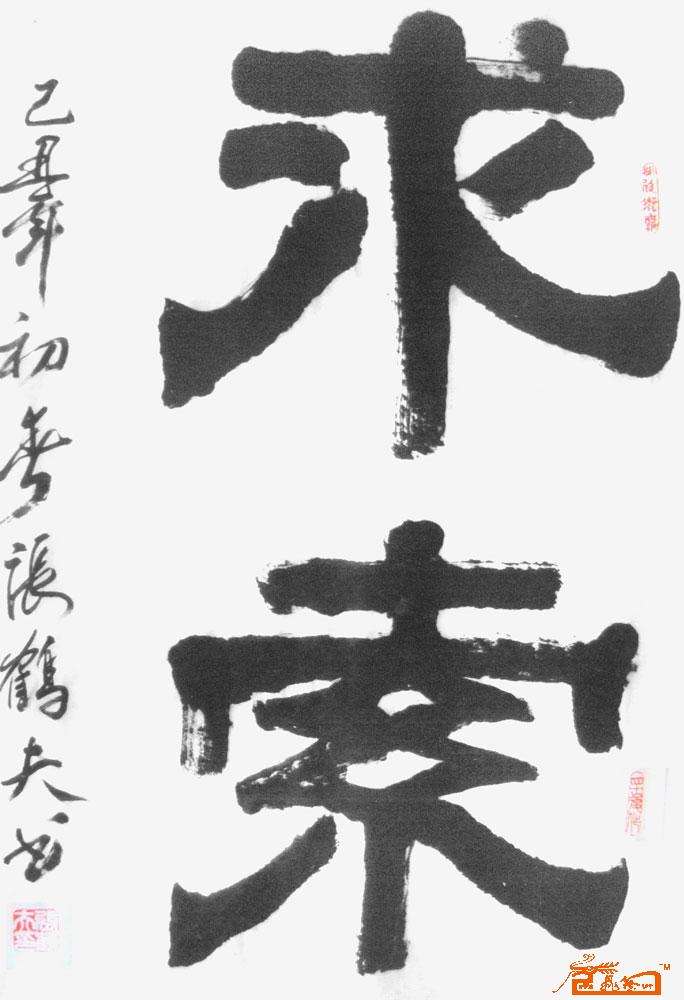 求索
己丑年初春張鶴夫书